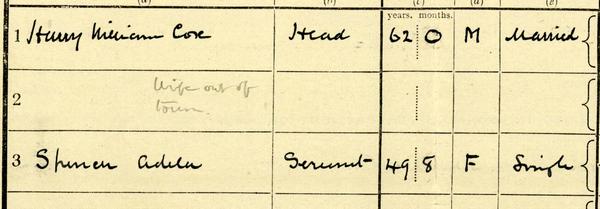 (a) (b) (c) (d) (e)
years. months.
1 Harry William Cox Head 62 0 M Married
2 Wife out of
town.
3 Spencer Adela Servant 49 8 F Single